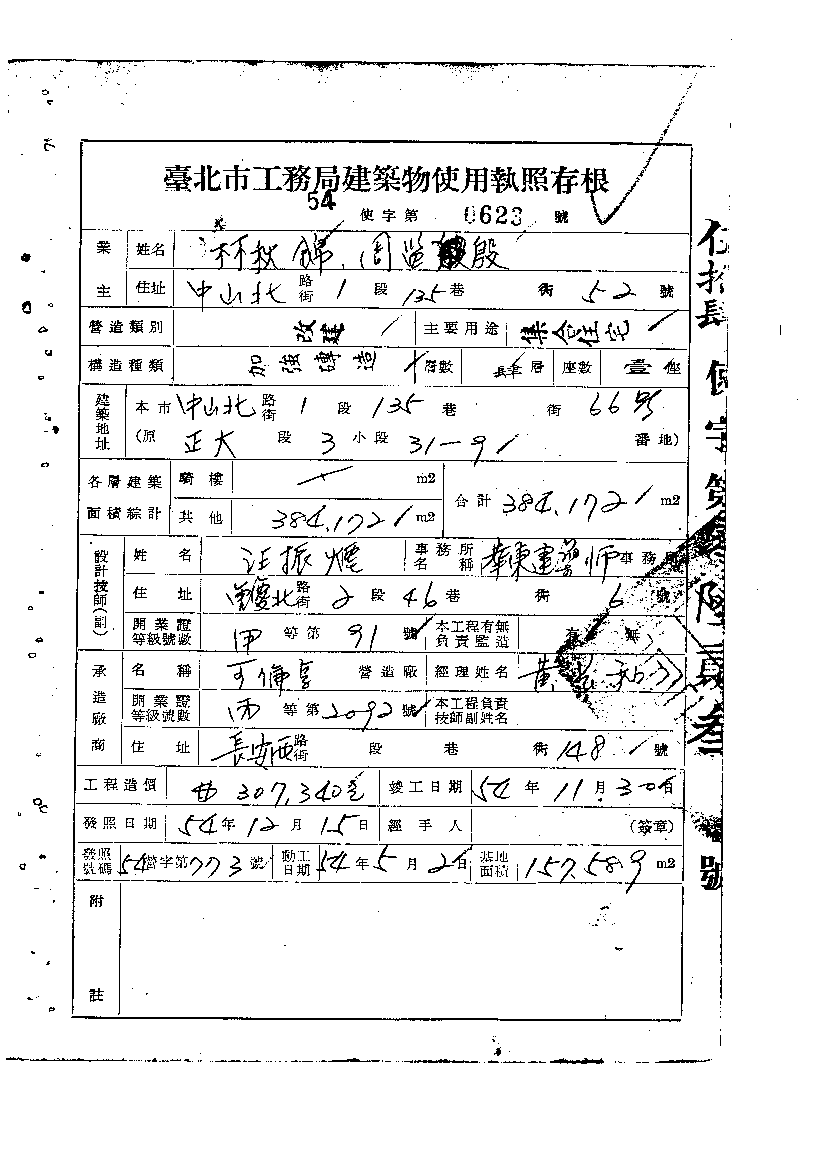 臺北市工務局建築物使用執照存根
54 使字第 0623 號
業主 姓名 林秋錦、周 殷
住址 中山北路街 1 段 135巷 街 52 號
營造類別 改建 主要用途 集合住宅
構造種類 加強磚造 層數 肆層 座數 壹座
建築地址 本市中山北路街 1 段 135 巷 街 66號
(原 正大 段 3 小段 31-9 番地)
各層建築面積綜計 騎樓 m2 合計 384.172 m2
其他 384.172 m2
設計技師(副) 姓名 汪振 事務所名稱 華東建築師事務所
住址 北路街 2 段 46巷 街 6 號
開業證等級號數 甲 等第 91 號 本工程有無負責監造 有 無
承造廠商 名稱 營造廠 經理姓名 黃
開業證等級號數 丙 等第 2092 號 本工程負責技師副姓名
住址 長安西路街 段 巷 街 148 號
工程造價 307,340 竣工日期 54年 11月 30日
發照日期 54年 12月 15日 經手人 (簽章)
發照號碼 54營字第773號 動工日期 54年 5月 2日 基地面積 157.589 m2
附註
伍拾肆 使字第零陸貳叁 號